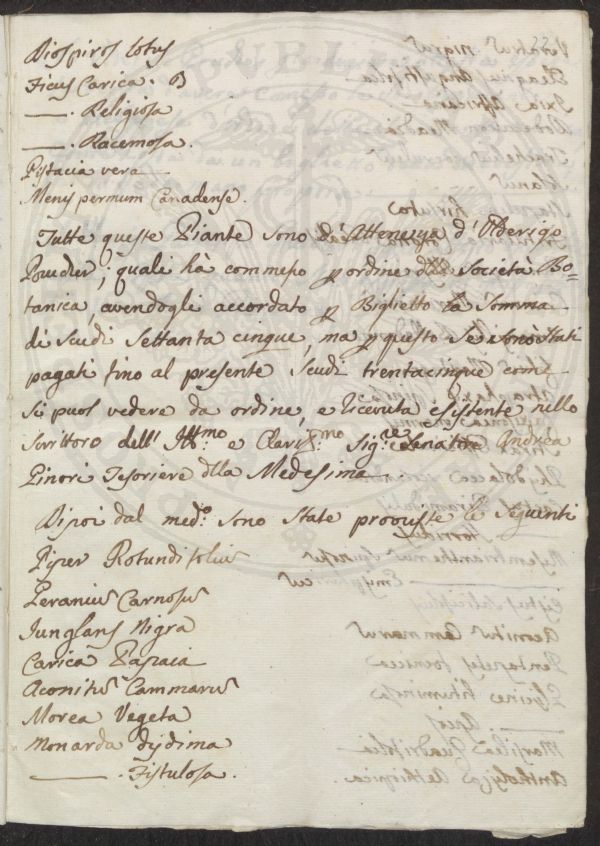 Diospiros Lotus
Ficus Carica. B
——. Religiosa
——. Racemosa.
Pistacia vera
Menispermum Canadense.
Tutte queste Piante sono d'Attenenza d'Alberigo
Powder; quali hà commesso p ordine della Società Bo=
tanica, avendogli accordato p Biglietto la Somma
di Scudi Settanta cinque, ma p questo Se sono Stati
pagati fino al presente Scudi trentacinque come
si puol vedere da ordine, e ricevuta esistente nello
Scrittoro dell' Ill.mo e Claris.mo Sig.re Senatore Andrea
Ginori Tesoriere dlla Medesima
Dipoi dal med.o sono state provviste le Seguenti
Piper Rotundifoliũ
Geraniũ Carnosũ
Junglans Nigra
Carica Papaia
Aconitũ Cammarũ
Morea Vegeta
Monarda dydima
——. Fistulosa.